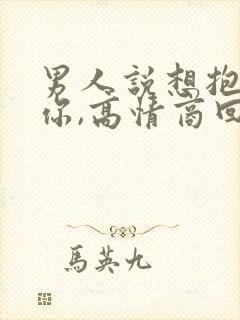 男人說想抱
你,高情商回
馬英九